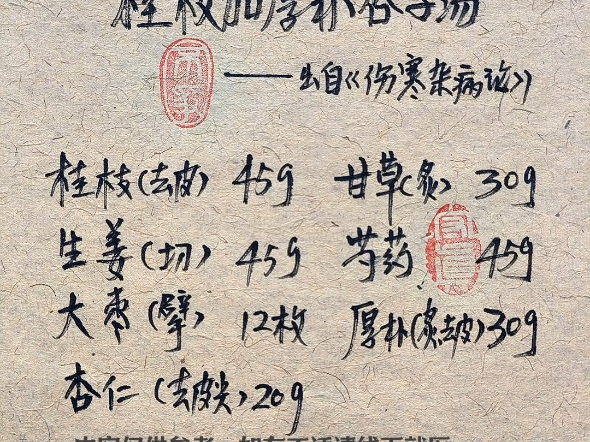 桂枝加厚朴杏子汤
——出自《伤寒杂病论》
桂枝(去皮) 45g 甘草(炙) 30g
生姜(切) 45g 芍药 45g
大枣(擘) 12枚 厚朴(炙去皮)30g
杏仁(去皮尖)20g
内容仅供参考，如有不适请线下就医